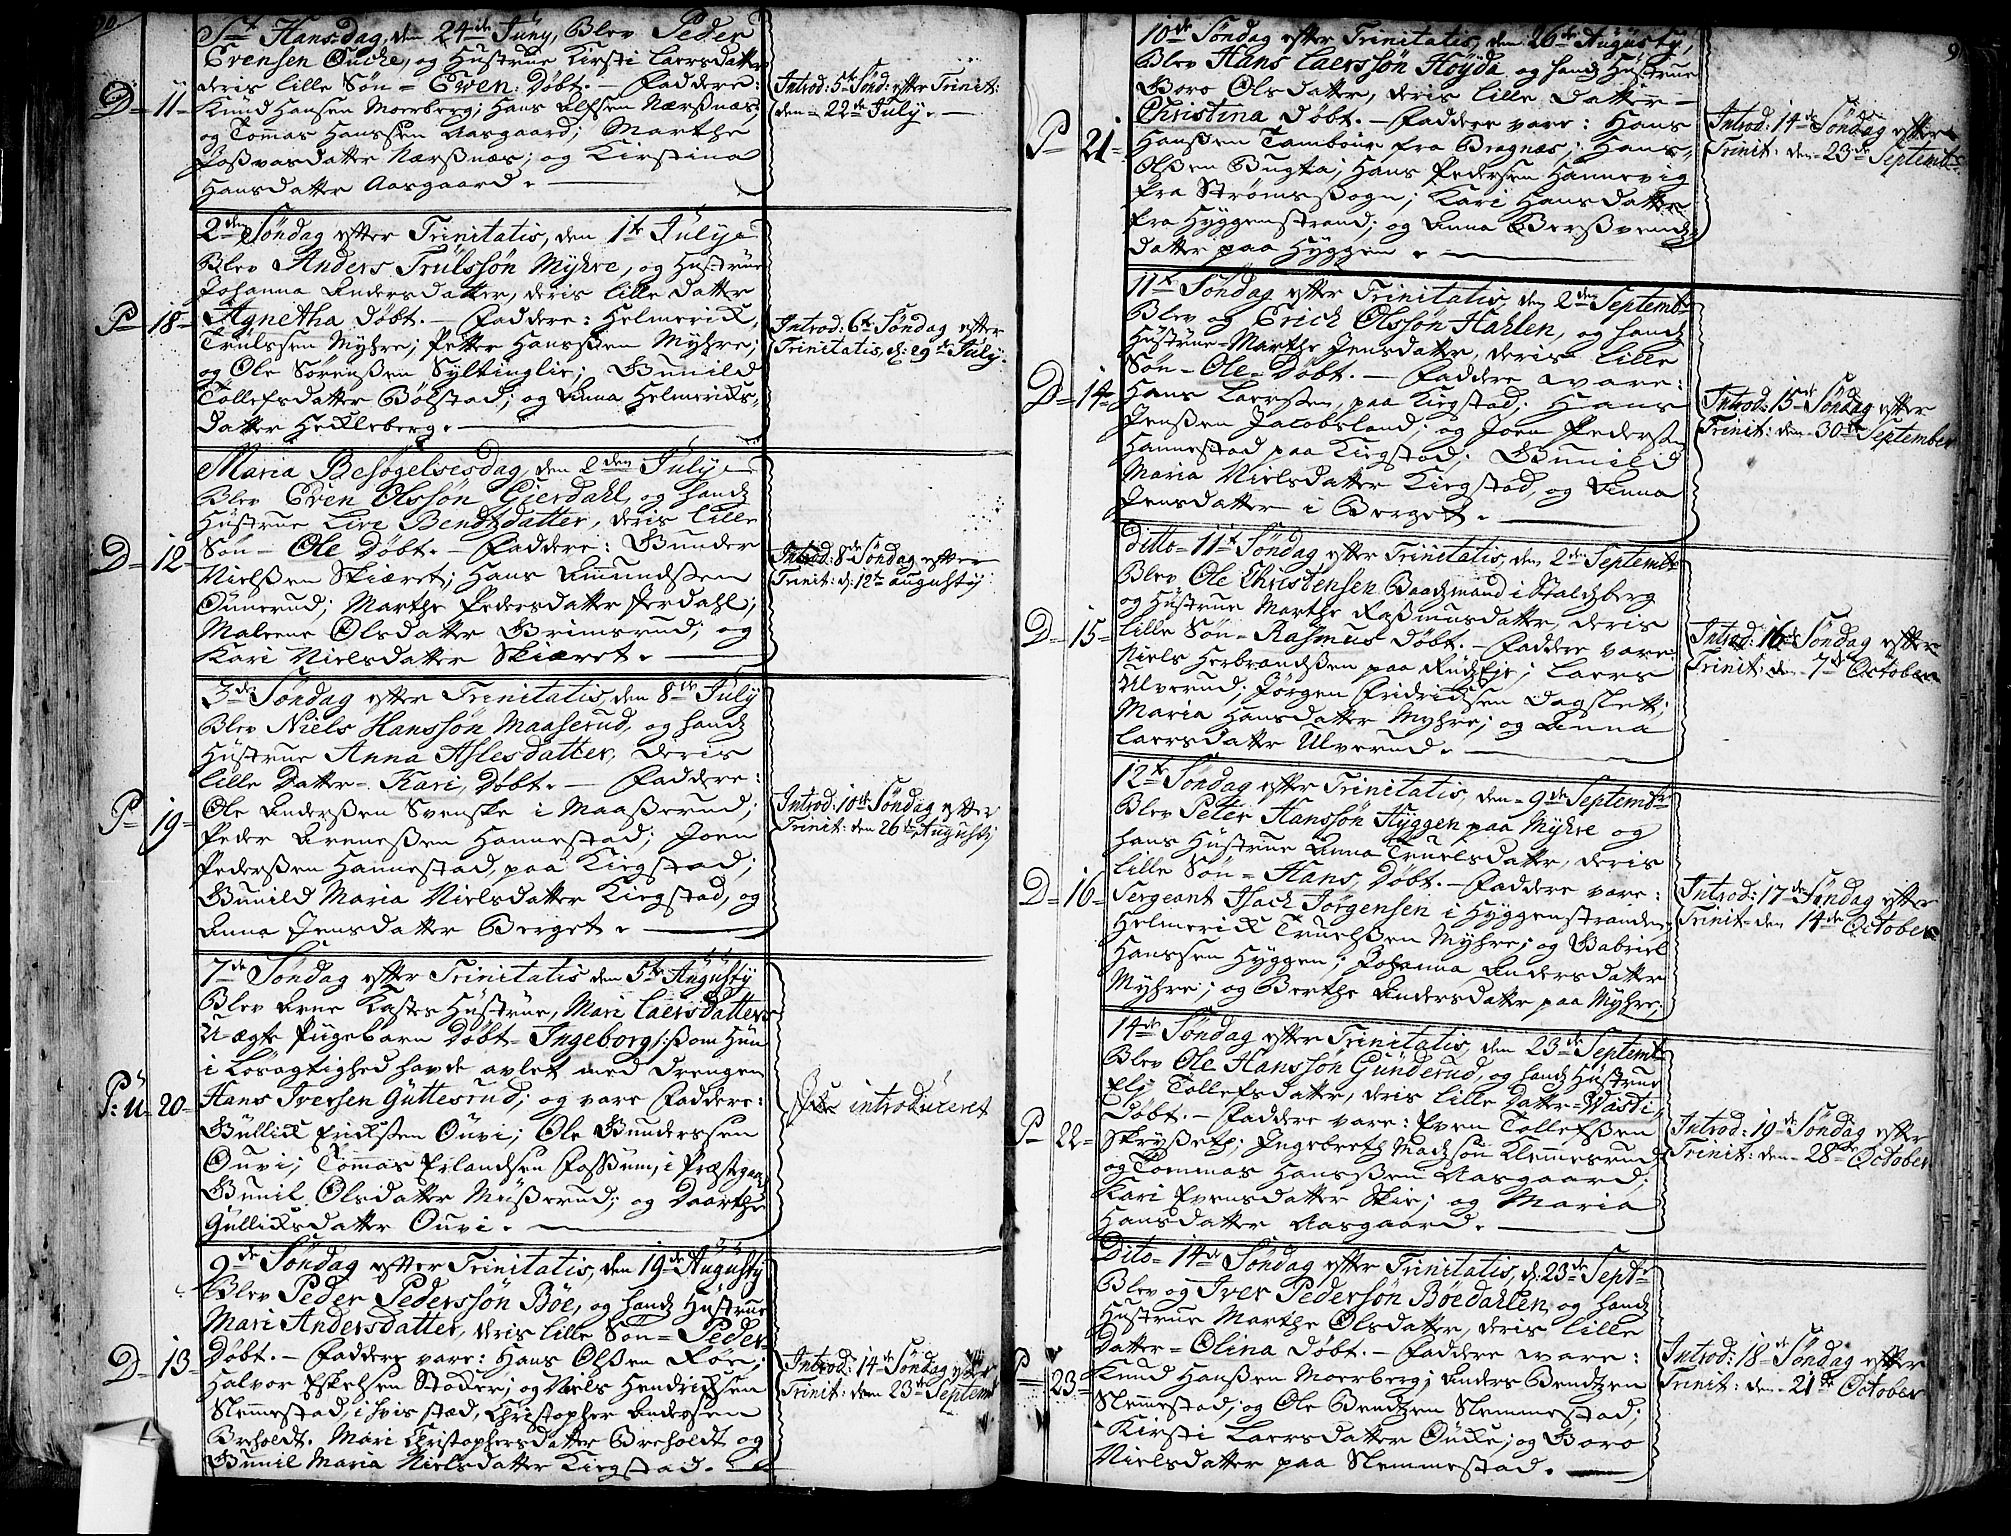 St Hans-dag, den 24de Juny, Blev Peder
Evensen Øucke, og Hustrue Kirsti Laersdatter
deris lille Søn = Even Døbt. — Faddere:
D = 11 =
Knud Hansen Moerberg; Hans Olssen Nærsnæs;
og Tommas Hanssen Aasgaard; Marthe
Nærsnæs; og Kirstina
Hansdatter Aasgaard. —
Introd: 5te Sønd: efter Trinit:
den 22de July. —
2den Søndag efter Trinitatis, den 1te July
Blev Anders Trulssøn Myhre, og Hustrue
Johanna Andersdatter, deris lille Datter
P = 18 =
Agnetha Døbt. — Faddere: Helmerick
Trulssen Myhre; Petter Hanssen Myhre;
og Ole Sørenssen Syltinglie; Gunild
Tollefsdatter Bølstad; og Anna Helmericks-
datter Hekleberg. —
Introd: 6te Søndag efter
Trinitatis, d: 29de July.
Maria Besøgelsesdag, den 2den July
Blev Even Olssøn Gierdahl, og hands
Hustrue Live Bendtzdatter, deris lille
D = 12 =
Søn — Ole Døbt. — Faddere: Gunder
Nielssen Skiæret; Hans Amundssen
Ounerud; Marthe Pedersdatter Jerdahl;
Maleene Olsdatter Grimsrud; og
Kari Nielsdatter Skiæret. —
Introd: 8de Søndag efter
Trinit: d: 12te augusty
3de Søndag efter Trinitatis, den 8de July
Blev Niels Hanssøn Maaserud, og hands
Hustrue Anna Aslesdatter, deris
lille Datter = Kari, Døbt. — Faddere:
P = 19 =
Ole Anderssen Svenske i Maasserud;
Peder Arnessen Hannestad; Joen
Pederssen Hannestad, paa Kirgstad;
Gunild Maria Nielsdatter Kirgstad, og
Anna Jensdatter Berget. —
Introd: 10de Søndag efter
Trinit: den 26de Augusty
7de Søndag efter Trinitatis den 5te Augusty
Blev Arne Hustrue, Mari Laersdatters
U-ægte Pigebarn Døbt = Ingeborg /: som hun
i Løsagtighed havde avlet med Drengen
P: U 20 =
Hans Iversen Guttesrud; og vare Faddere:
Gullick Erickssen Ouvi; Ole Gunderssen
Ouvi; Tommas Erlandsen Fossum, i Præstegaard
Gunil Olsdatter Musserud; og Daarthe
Gullicksdatter Ouvi. —
introduceret
9de Søndag efter Trinitatis, den 19de Augusty
Blev Peder Pederssøn Bøe, og hands Hustrue
Mari Andersdatter, deris lille Søn = Peder
D = 13 =
Døbt. — Faddere vare: Hans Olssen Røe;
Halvor Eskelsen Støder; og Niels Hendrichsen
Slemmestad, i hvis stæd, Christopher Andersen
Breholdt. Mari Christophersdatter Breholdt og
Gunil Maria Nielsdatter Kirgstad. —
Introd: 14de Søndag efter
Trinit: den 23de Septemb
9
10de Søndag efter Trinitatis, den 26de Augusty,
Blev Hans Laerssøn Høyda og hands Hustrue
Boro Olsdatter, deris lille Datter —
Christina Døbt. — Faddere vare: Hans
P = 21 =
Hanssen Tambour fra Bragnæs; Hans
Olssen Bugta; Hans Pedersen Hannevig
fra Strømssogn; Kari Hansdatter
fra Hyggenstrand; og Anna Berssvends-
datter paa Hyggen. —
Introd: 14de Søndag efter
Trinit: den 23de Septembr.
11te Søndag efter Trinitatis, den 2den Septembr
Blev og Erich Olssøn Hahlen, og hands
Hustrue = Marthe Jensdatter, deris lille
D = 14 =
Søn — Ole = Døbt. — Faddere vare:
Hans Laerssen, paa Kirgstad; Hans
Jenssen Jacobsland; og Joen Pederssen
Hannestad paa Kirgstad; Gunild
Maria Nielsdatter Kirgstad, og Anna
Jensdatter i Berget. —
Introd: 15de Søndag efter
Trinit: den 30de September
Ditto = 11te Søndag efter Trinitatis, den 2den Septembr
Blev Ole Christensen Baadsmand i
og Hustrue Marthe Rasmusdatter, deris
D = 15 =
lille Søn = Rasmus Døbt. — Faddere vare
Niels Herbrandssen paa ; Laers
Ulverud; Jørgen Fridrichsen Dagslett;
Maria Hansdatter Myhre; og Anna
Laersdatter Ulverud. —
Introd: 16de Søndag efter
Trinit: den 7de October
12te Søndag efter Trinitatis, den 9de Septembr
Blev Peter Hanssøn Hyggen paa Myhre og
hans Hustrue Anna Truelsdatter, deris
lille Søn = Hans, Døbt. — Faddere vare:
D = 16 =
Sergeant Isach Jørgensen i Hyggenstranden,
Helmerick Truelssen Myhre; og Gabriel
Hanssen Hyggen; Johanna Andersdatter
Myhre; og Berthe Andersdatter paa Myhre;
Introd: 17de Søndag efter
Trinit: den 14de October
14de Søndag efter Trinitatis, den 23de Septemb
Blev Ole Hanssøn Gunderud, og hands Hustrue
Eli Tollefsdatter, deris lille Datter = Wasti,
Døbt. — Faddere vare: Even Tollefssen
P = 22 =
; Ingebreth Madssøn Klemmesrud
og Tommas Hanssen Aasgaard;
Kari Evensdatter Skie; og Maria
Hansdatter Aasgaard. —
Introd: 19de Søndag efter
Trinit: den 28de October
Dito = 14de Søndag efter Trinitatis, d: 23de Septr
Blev og Iver Pederssøn Bøedahlen, og hands
Hustrue Marthe Olsdatter, deris lille
Datter = Olina Døbt. — Faddere vare:
P = 23 =
Knud Hanssen Moerberg; Anders Bendtzen
Slemmestad; og Ole Bendtzen Slemmestad;
Kirsti Laersdatter Øucke; og Boro
Nielsdatter paa Slemmestad. —
Introd: 18de Søndag efter
Trinit: den 21de October